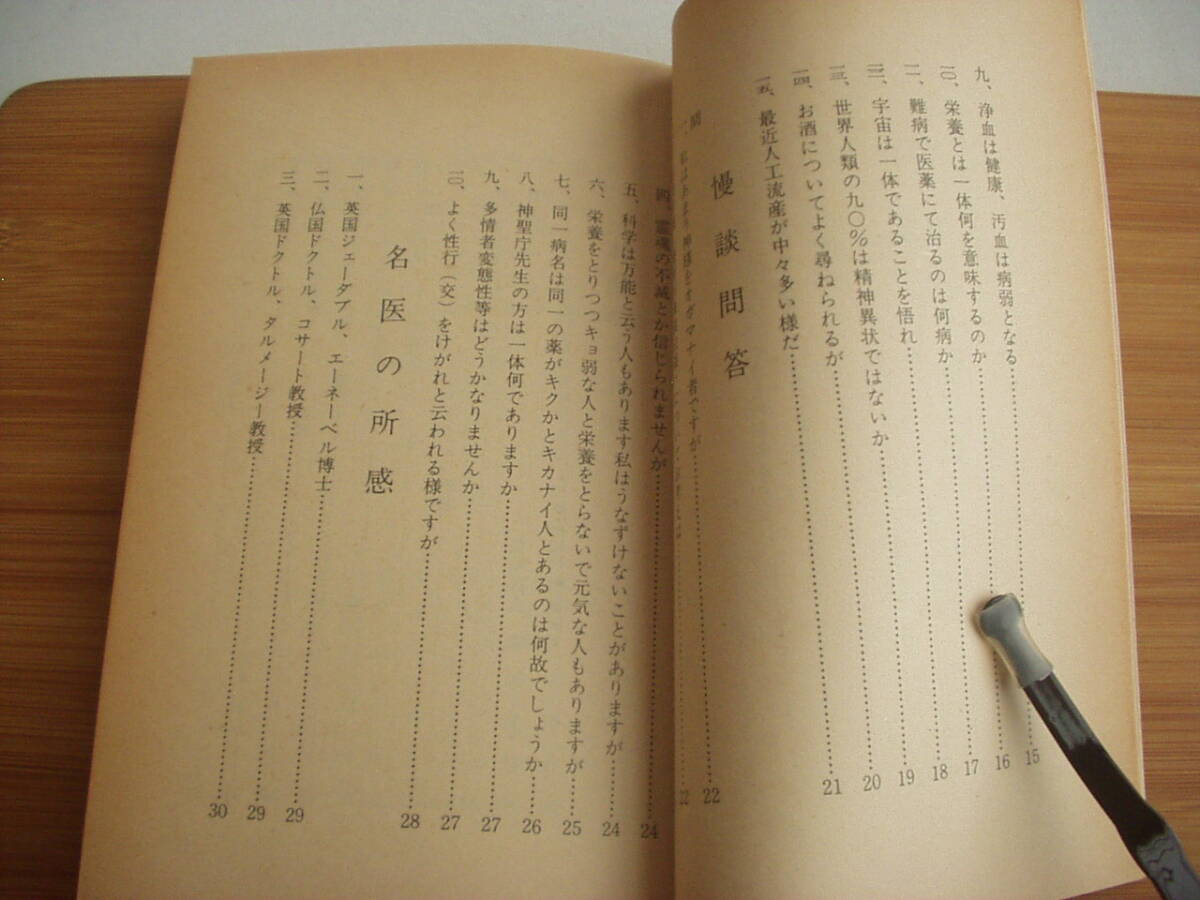 九、浄血は健康、汚血は病弱となる……15
一〇、栄養とは一体何を意味するのか……16
一一、難病で医薬にて治るのは何病か……17
一二、宇宙は一体であることを悟れ……18
一三、世界人類の九〇%は精神異状ではないか……19
一四、お酒についてよく尋ねられるが……20
一五、最近人工流産が中々多い様だ……21
慢談問答
22
22
四、霊魂の不滅とか信じられませんが……24
五、科学は万能と云う人もあります私はうなずけないことがありますが……24
六、栄養をとりつつキョ弱な人と栄養をとらないで元気な人もありますが……25
七、同一病名は同一の薬がキクかとキカナイ人とあるのは何故でしょうか……26
八、神聖庁先生の方は一体何でありますか……27
九、多情者変態性等はどうかなりませんか……27
一〇、よく性行(交)をけがれと云われる様ですが……28
名医の所感
一、英国ジェーダブル、エーネーベル博士……29
二、仏国ドクトル、コサート教授……29
三、英国ドクトル、タルメージー教授……30